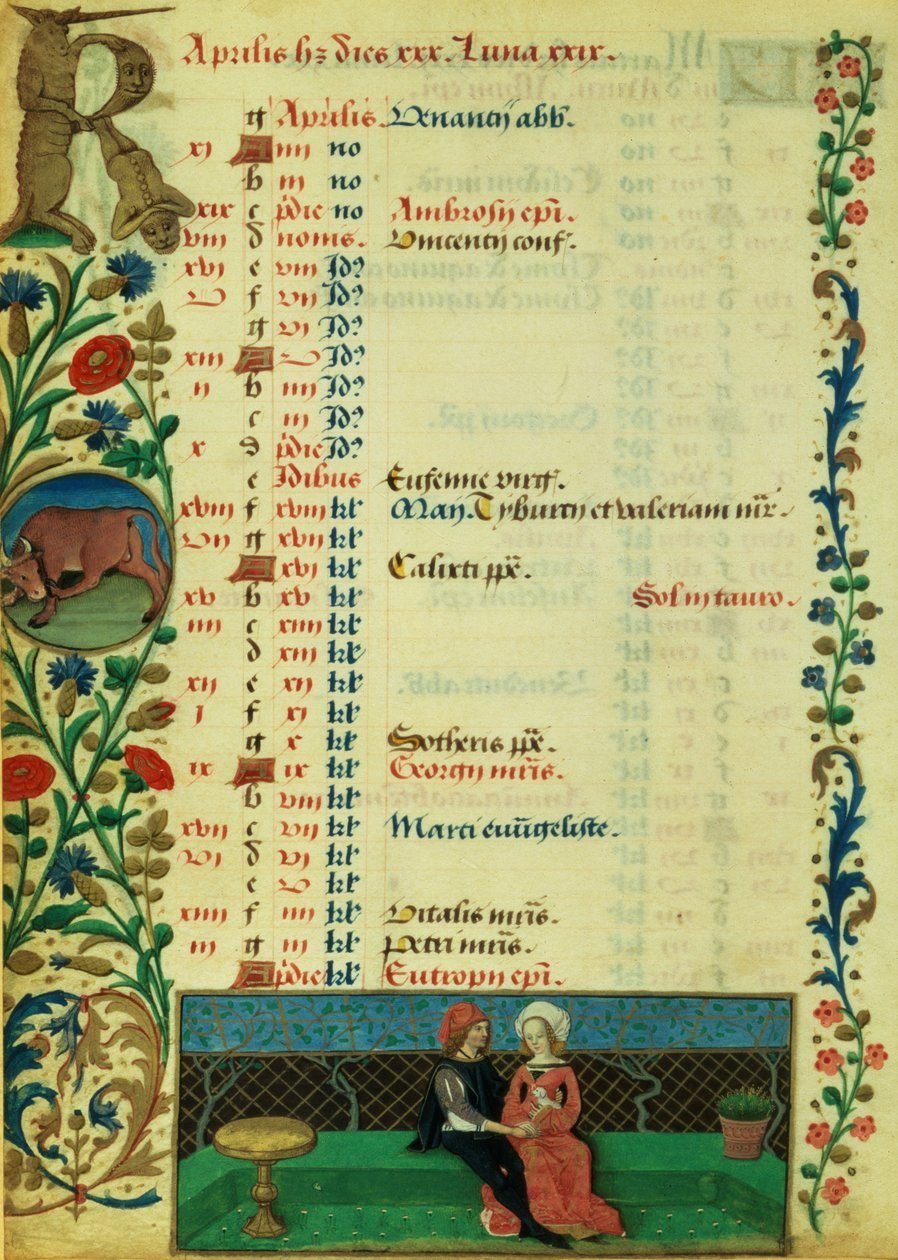 Aprilis hz dies xxx. Luna xxix.
g Aprilis. Venantij abb.
xi A iiii no
b iii no
xix c pdie no Ambrosij epi.
viii d nonis. Vincentij conf.
xvi e viii Id9
v f vii Id9
g vi Id9
xiii A v Id9
ii b iiii Id9
c iii Id9
x d pdie Id9
e Idibus Eufemie virg.
xviii f xviii kl May. Tyburcij et valeriani mr.
vii g xvii kl
A xvi kl Calixti pp.
xv b xv kl Sol in tauro.
iiii c xiiii kl
d xiii kl
xii e xii kl
i f xi kl
g x kl Sotheris pp.
ix A ix kl Georgij mris.
b viii kl
xvii c vii kl Marci evvngeliste.
vi d vi kl
e v kl
xiiii f iiii kl Vitalis mris.
iii g iii kl petri mris.
A pdie kl Eutropij epi.